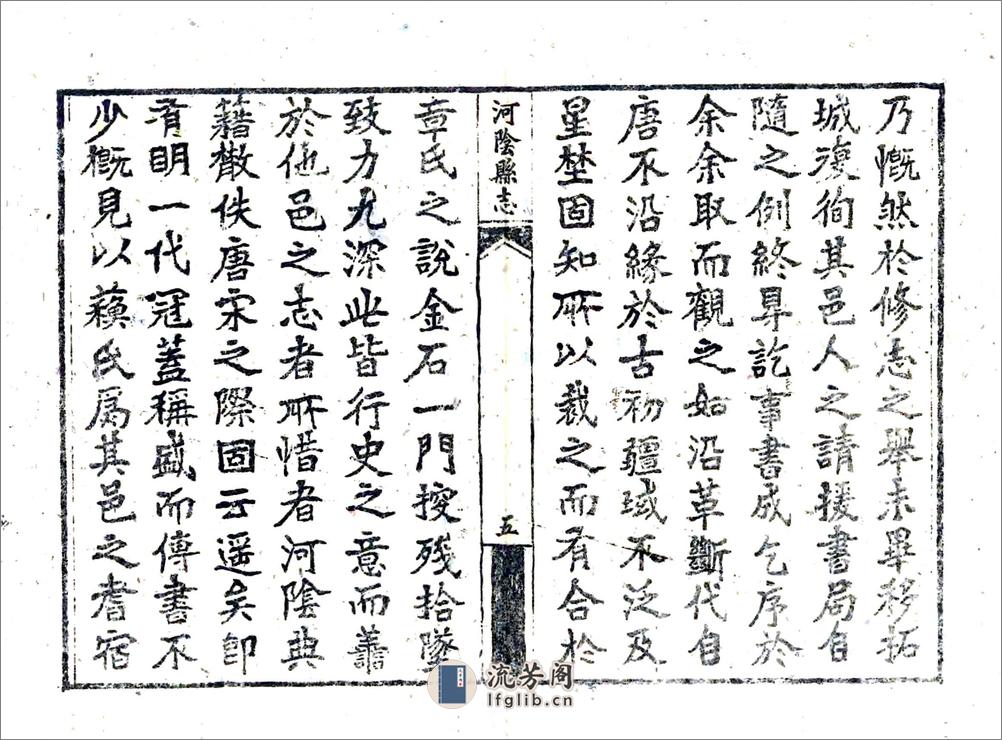 乃慨然於修志之舉未畢移拓
城復徇其邑人之請援書局自
隨之例終㝵訖事書成乞序於
余余取而觀之如沿革斷代自
唐不沿緣於古初疆域不泛及
星埜固知所以裁之而有合於
河陰縣志
五
章氏之說金石一門搜殘拾墜
致力尤深此皆行史之意而善
於他邑之志者所惜者河陰典
籍散佚唐宋之際固云遥矣即
有明一代冠蓋稱盛而傳書不
少概見以蘓氏屬其邑之耆宿
流芳阁
lfglib.cn